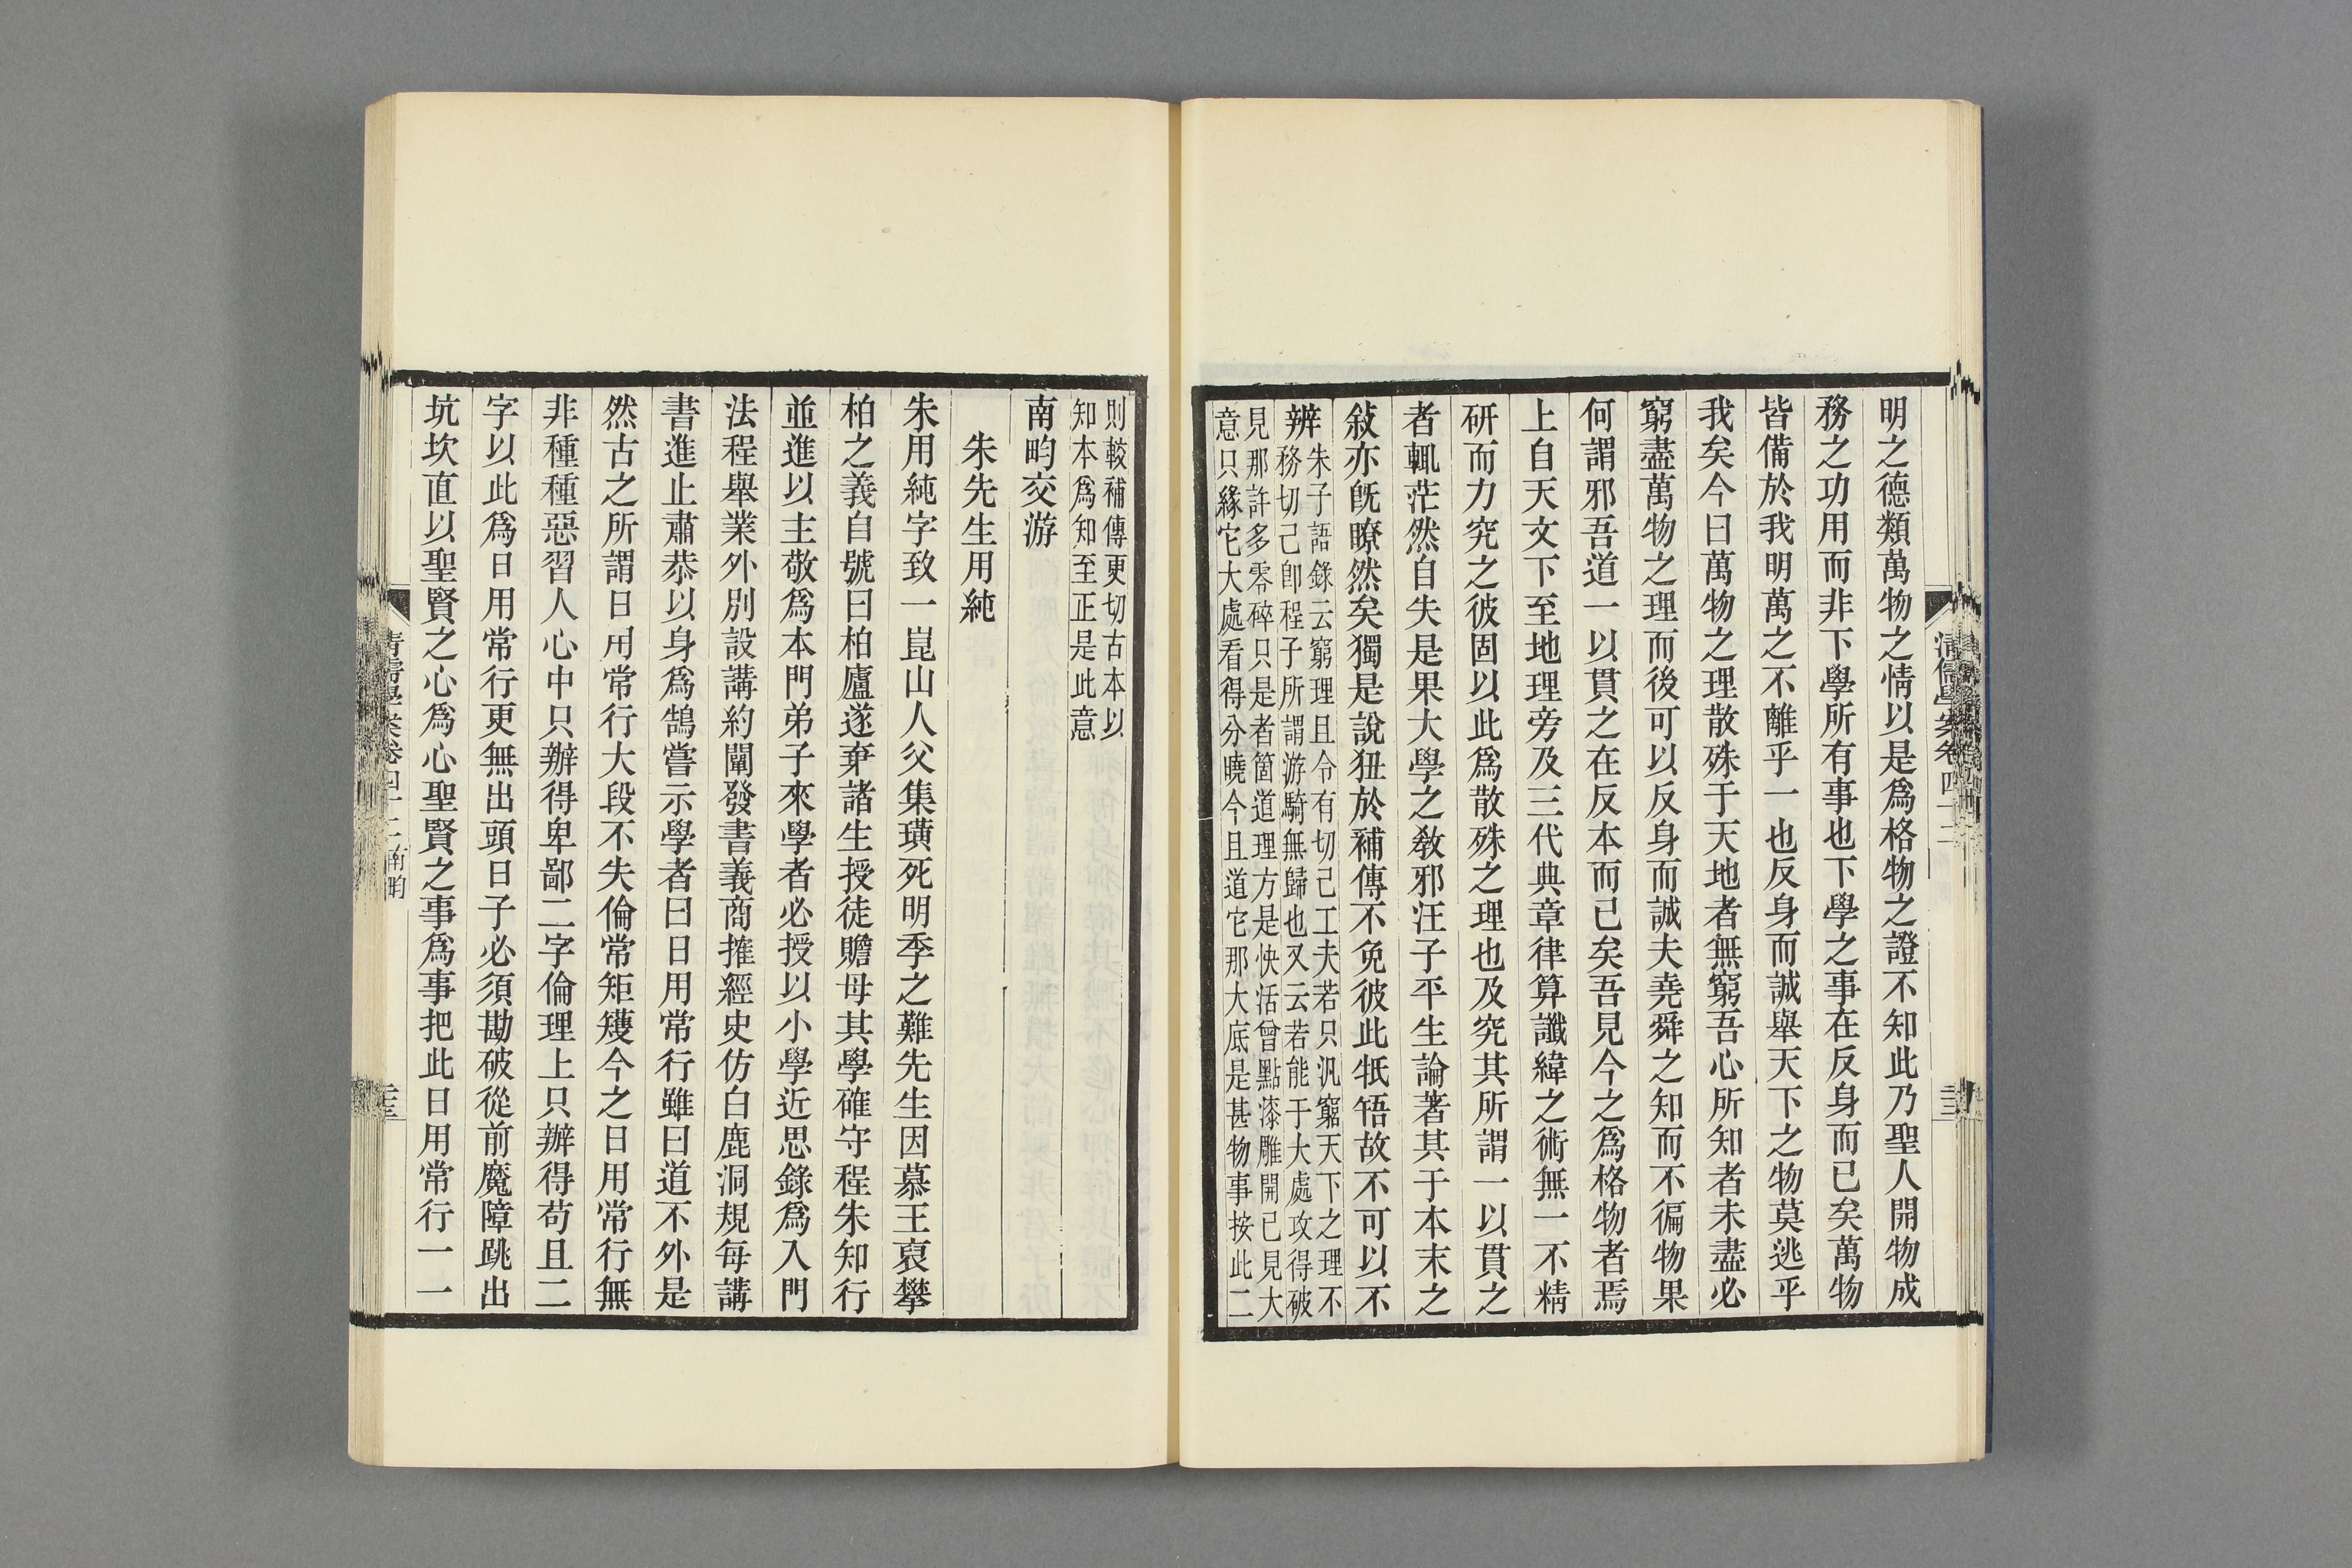 明之德類萬物之情以是爲格物之證不知此乃聖人開物成
務之功用而非下學所有事也下學之事在反身而已矣萬物
皆備於我明萬之不離乎一也反身而誠舉天下之物莫逃乎
我矣今曰萬物之理散殊于天地者無窮吾心所知者未盡必
窮盡萬物之理而後可以反身而誠夫堯舜之知而不徧物果
何謂邪吾道一以貫之在反本而已矣吾見今之爲格物者焉
上自天文下至地理旁及三代典章律算讖緯之術無一不精
研而力究之彼固以此爲散殊之理也及究其所謂一以貫之
者輒茫然自失是果大學之敎邪汪子平生論著其于本末之
敍亦旣瞭然矣獨是說狃於補傳不免彼此牴牾故不可以不
辨
朱子語錄云窮理且令有切己工夫若只汎窮天下之理不
務切己卽程子所謂游騎無歸也又云若能于大處攻得破
見那許多零碎只是者箇道理方是快活曾點漆雕開已見大
意只緣它大處看得分曉今且道它那大底是甚物事按此二
清儒學案卷四十二
則較補傳更切古本以
知本爲知至正是此意
南畇交游
朱先生用純
朱用純字致一崑山人父集璜死明季之難先生因慕王裒攀
柏之義自號曰柏廬遂棄諸生授徒贍母其學確守程朱知行
並進以主敬爲本門弟子來學者必授以小學近思錄爲入門
法程舉業外別設講約闡發書義商搉經史仿白鹿洞規每講
書進止肅恭以身爲鵠嘗示學者曰日用常行雖曰道不外是
然古之所謂日用常行大段不失倫常矩矱今之日用常行無
非種種惡習人心中只辦得卑鄙二字倫理上只辦得苟且二
字以此爲日用常行更無出頭日子必須勘破從前魔障跳出
坑坎直以聖賢之心爲心聖賢之事爲事把此日用常行一一
清儒學案卷四十二南畇